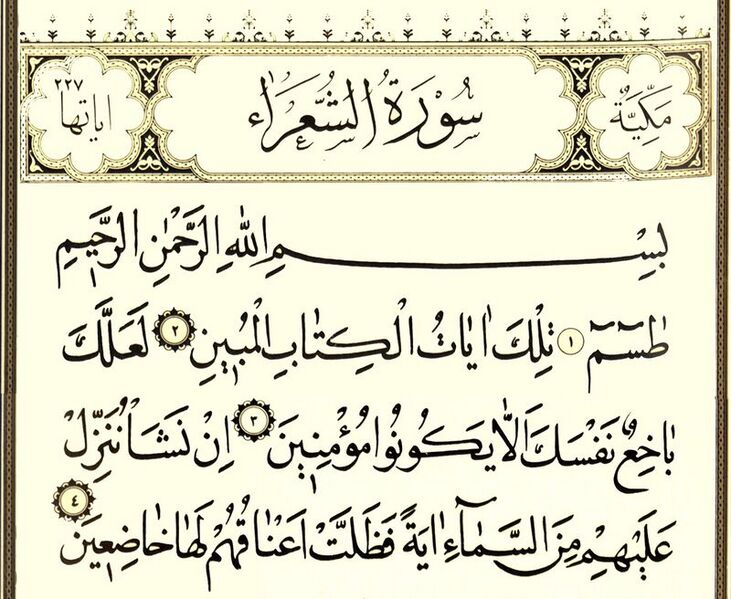 مَكِّيَّةٌ
سُورَةُ الشُّعَرَاءِ
اياتها ٢٢٧
بِسْمِ اللهِ الرَّحْمٰنِ الرَّحٖيمِ
طٰسٓمٓ ١ تِلْكَ اٰيَاتُ الْكِتَابِ الْمُبٖينِ ٢ لَعَلَّكَ
بَاخِعٌ نَفْسَكَ اَلَّا يَكُونُوا مُؤْمِنٖينَ ٣ اِنْ نَشَأْ نُنَزِّلْ
عَلَيْهِمْ مِنَ السَّمَٓاءِ اٰيَةً فَظَلَّتْ اَعْنَاقُهُمْ لَهَا خَاضِعٖينَ ٤